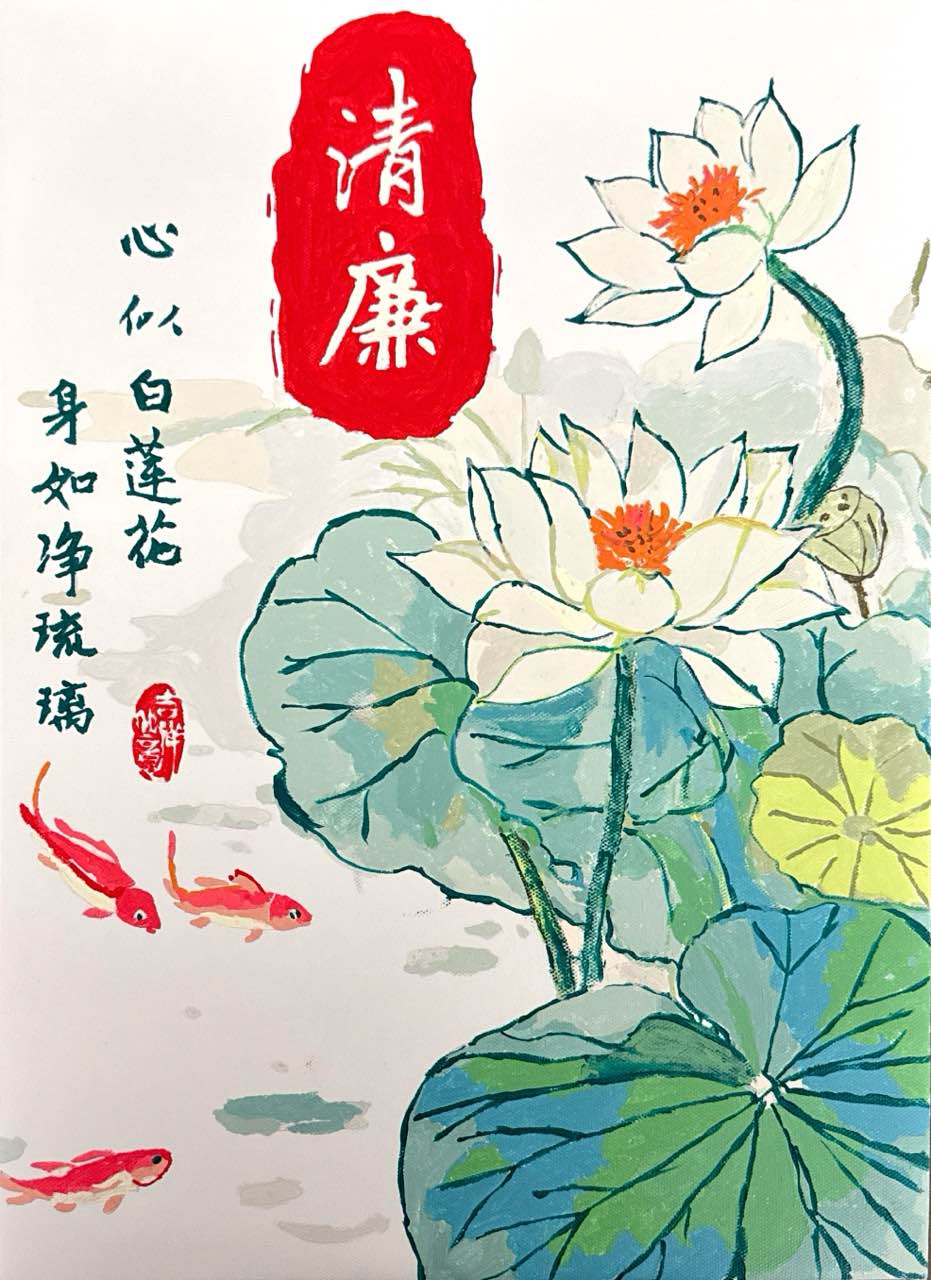 清廉
心似白莲花
身如净琉璃